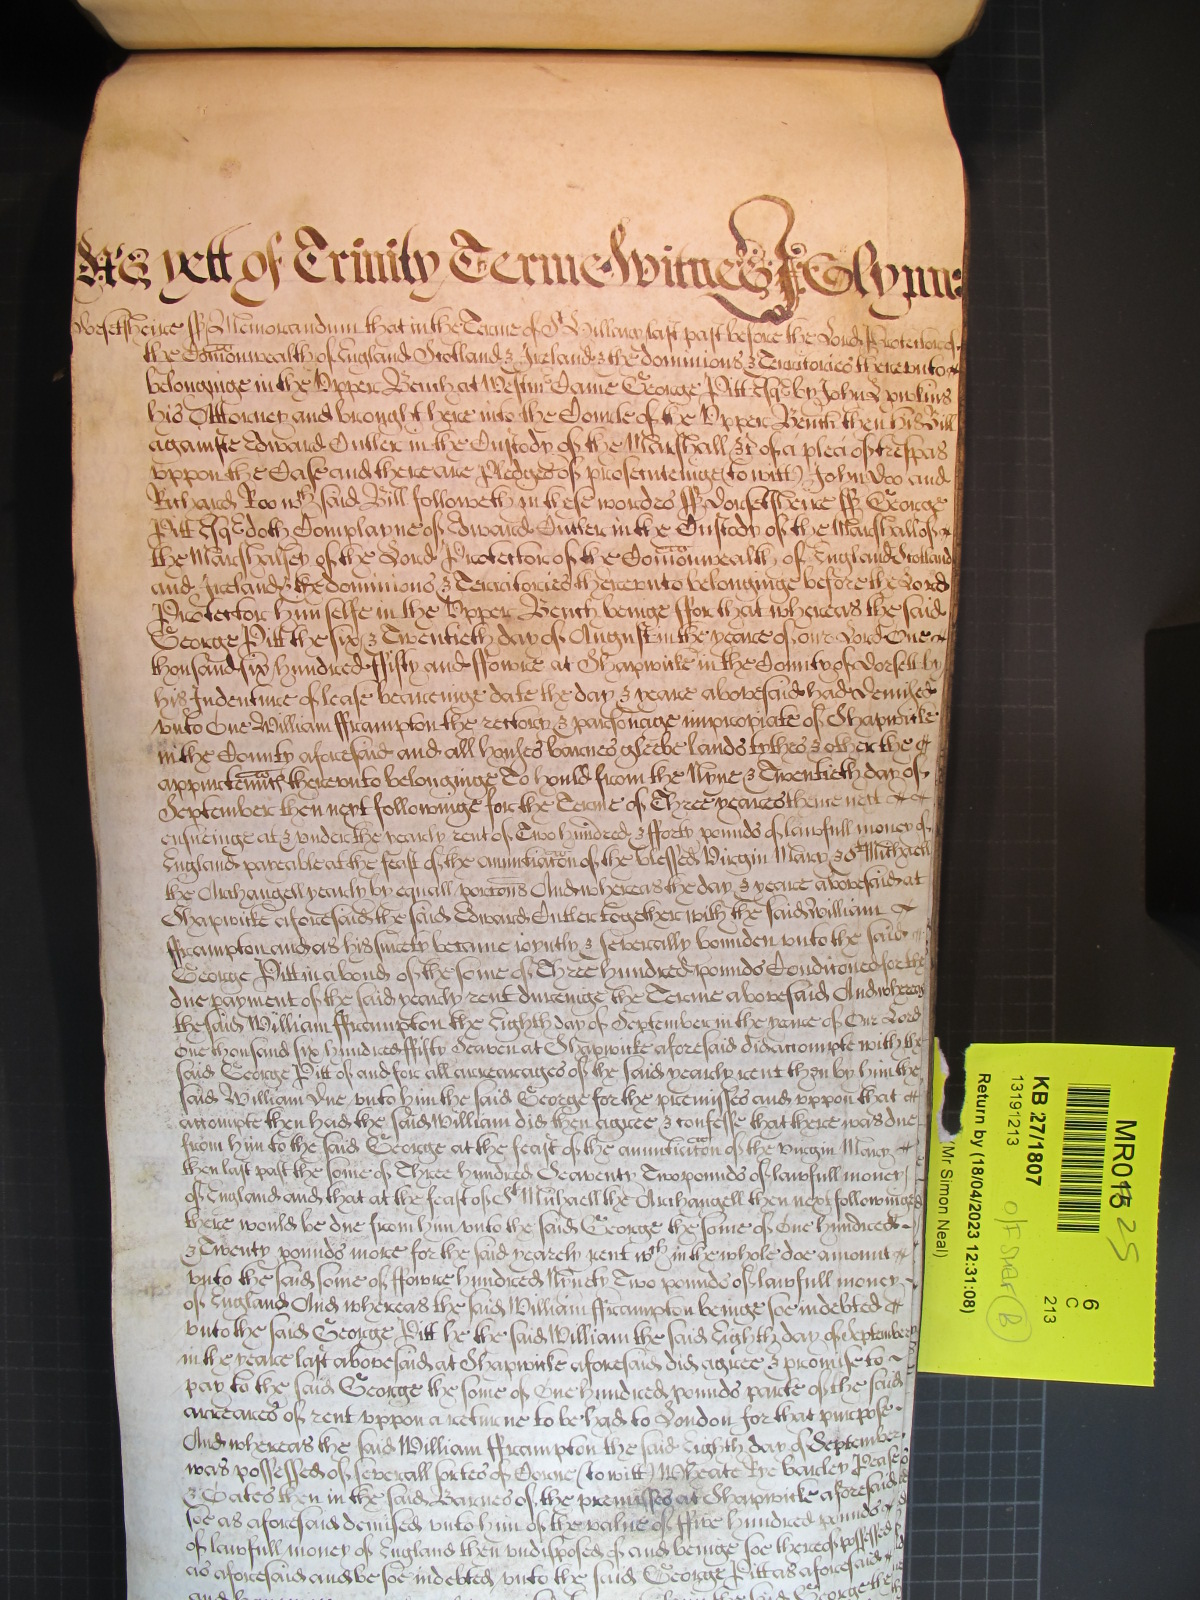 As yett of Trinity Terme Witnes J Glynne
Dorsetsheire ss Memorandum that in the Terme of St Hillary last past before the Lord Protector of
the Comonwealth of England Scotland & Ireland & the dominions & Territories therevnto
belonginge in the Vpper Bench at Westmr Came George Pitt Esqr by John
his Attorney and brought here into the Courte of the Vpper Bench then his Bill
againste Edward Cutler in the Custody of the Marshall &c of a plea of trespas
vppon the Case and there are Pledges of prosecuteinge (to witt) John Doo and
Richard Roo wch said Bill followeth in these wordes ss Dorsetsheire ss George
Pitt Esqr doth Complayne of Edward Cutler in the Custody of the Marshall of
the Marshalsey of the Lord Protector of the Comonwealth of England Scotland
and Ireland & the dominions & Territories therevnto belonginge before the Lord
Protector himselfe in the Vpper Bench beinge ffor that whereas the said
George Pitt the six & Twentieth day of August in the yeare of our Lord One
thousand six hundred ffifty and ffowre at Shapwicke in the County of Dorsett by
his Indenture of lease beareinge date the day & yeare abovesaid had Demised
vnto One William fframpton the rectory & parsonage impropiate of Shapwicke
in the County aforesaid and all houses barnes gleebe lands tythes & other the
appurtenncs therevnto belonginge To hould from the Nyne & Twentieth day of
September then next followinge for the Terme of Three yeares thence next
ensueinge at & vnder the yearly rent of Two hundred & fforty pounds of lawfull money of
England payeable at the feast of the annuntiacon of the blessed Virgin Mary & St Michaell
the Archangell yearly by equall porcons And whereas the day & yeare abovesaid at
Shapwicke aforesaid the said Edward Cutler together with the said William
fframpton and as his surety became ioyntly & severally bounden vnto the said
George Pitt in a bond of the some of Three hundred pounds Conditioned for the
due payment of the said yearly rent dureinge the Terme abovesaid And whereas
the said William fframpton the Eighth day of September in the yeare of Our Lord
One thousand six hundred ffifty Seaven at Shapwicke aforesaid did accompte with the
said George Pitt of and for all arrearages of the said yearly rent then by him the
said William due vnto him the said George for the premisses and vppon that
accompte then had the said William did then agree & confesse that there was due
from him to the said George at the feast of the annunticacon of the virgin Mary
then last past the some of Three hundred Seaventy Two pounds of lawfull money
of England and that at the feast of St Michaell the Archangell then next followinge
there would be due from him vnto the said George the some of One hundred
& Twenty pounds more for the said yearely rent wch in the whole doe amount
vnto the said some of ffowre hundred Ninety Two pounds of lawfull money
of England And whereas the said William fframpton beinge soe indebted
vnto the said George Pitt he the said William the said Eighth day of September
in the yeare last abovesaid at Shapwicke aforesaid did agree & promise to
pay to the said George the some of One hundred pounds parte of the said
arreares of rent vppon a returne to be had to London for that purpose
And whereas the said William fframpton the said Eighth day of September
was possessed of severall sortes of Corne (to witt) Wheate Rye barley Pease
& Oates then in the said Barnes of the premisses at Shapwicke aforesaid
soe as aforesaid demised vnto him of the value of ffive hundred pounds
of lawfull money of England then vndisposed of and beinge soe thereof possessed
as aforesaid and be soe indebted vnto the said George Pitt as aforesaid
the said George the
MR015 25
6
C
213
KB 27/1807
13191213
Return by (18/04/2023 12:31:08)
(Mr Simon Neal)